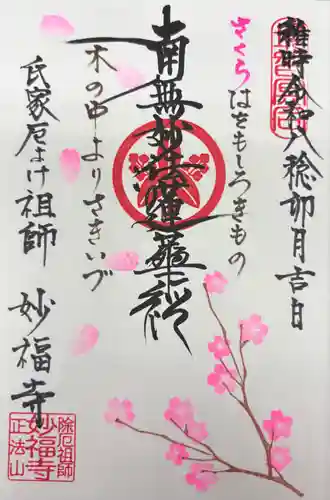 維時令和八稔卯月吉日
さくらはおもしろきもの
南無妙法蓮華経
木の中よりさきいづ
氏家厄よけ祖師
妙福寺
除厄祖師
妙福寺
正法山